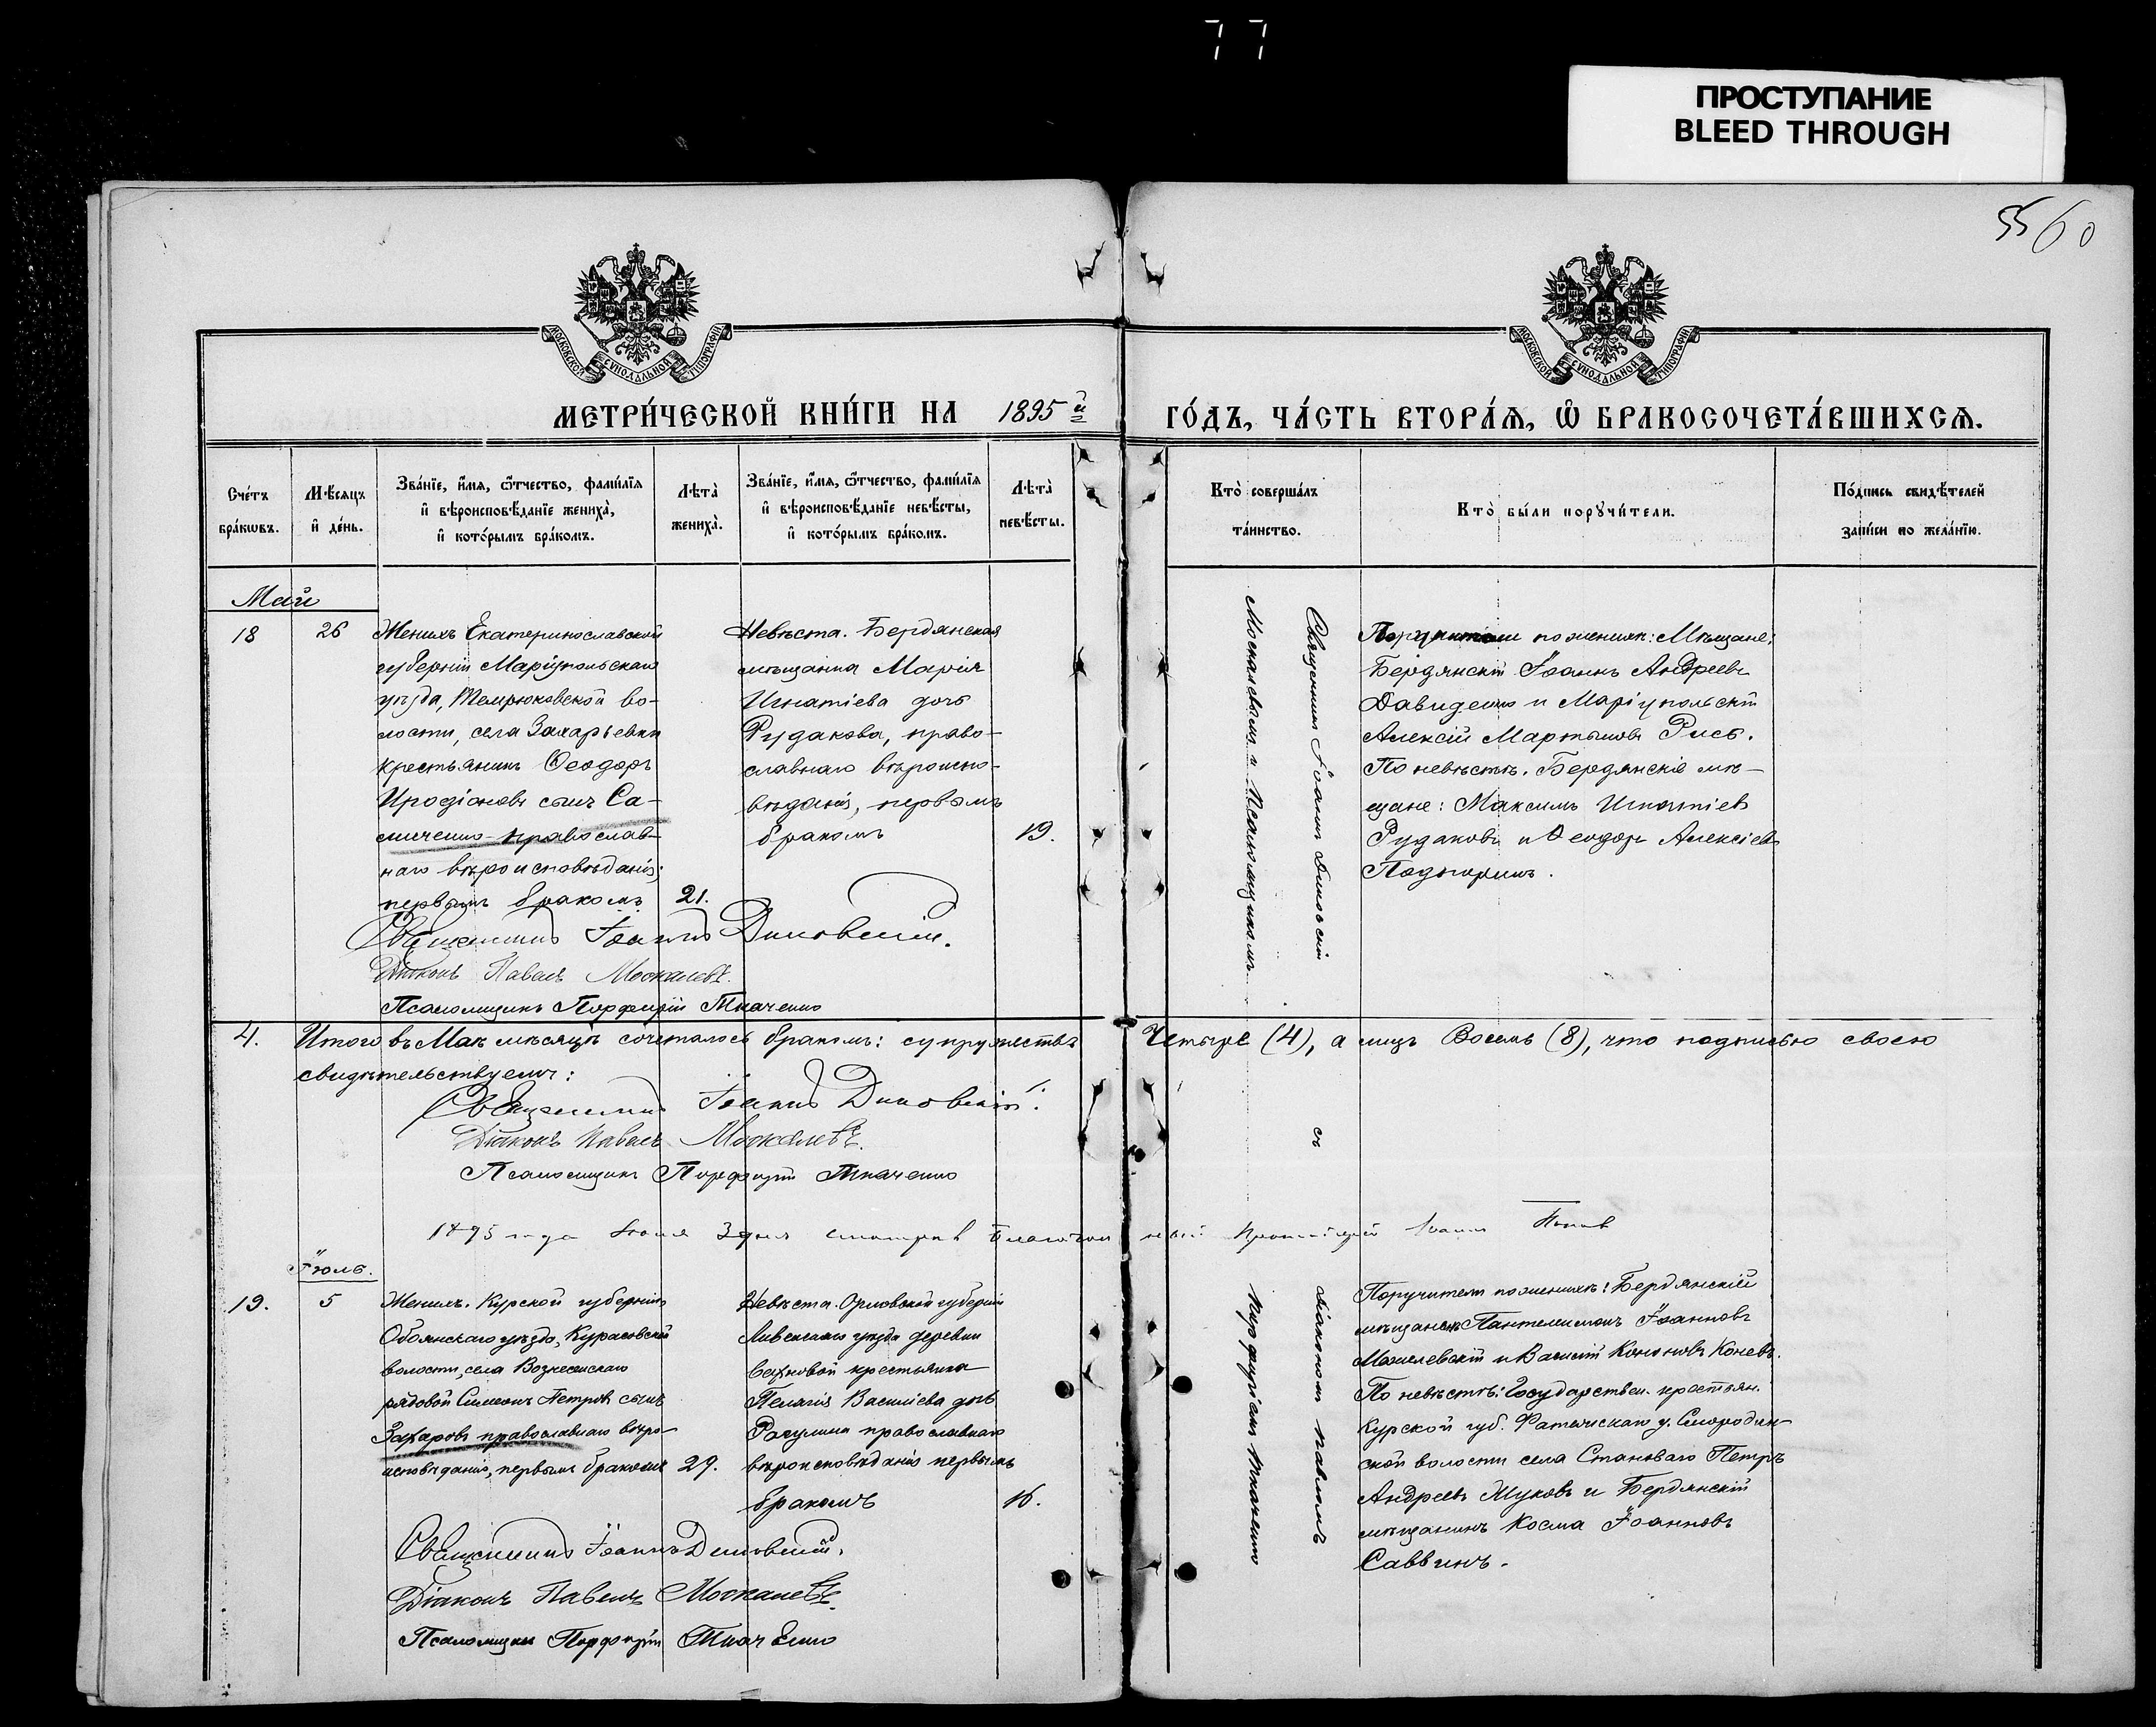 77
ПРОСТУПАНИЕ
BLEED THROUGH
55 60
МОСКОВСКОЙ СѴНОДАЛЬНОЙ ТИПОГРАФІИ
МОСКОВСКОЙ СѴНОДАЛЬНОЙ ТИПОГРАФІИ
МЕТРИ́ЧЕСКОЙ КНИ́ГИ НА 1895й
ГО́ДЪ, ЧА́СТЬ ВТОРА́Ѧ, Ѽ БРАКОСОЧЕТА́ВШИХСѦ.
Сче́тъ бра́кѡвъ.
Мѣ́сяцъ и҆ де́нь.
Зва́нїе, и҆́мя, ѻ҆́тчество, фами́лїя
и҆ вѣроисповѣ́данїе жениха̀,
и҆ кото́рымъ бра́комъ.
Лѣта̀ жениха̀.
Зва́нїе, и҆́мя, ѻ҆́тчество, фами́лїя
и҆ вѣроисповѣ́данїе невѣ́сты,
и҆ кото́рымъ бра́комъ.
Лѣта̀ невѣ́сты.
Кто̀ соверша́лъ
та́инство.
Кто̀ бы́ли порꙋчи́тели.
По́дпись свидѣ́телей
за́писи по жела́нїю.
Май
18
26
Женихъ Екатеринославской
губерніи Маріупольскаго
уѣзда, Темрюковской во-
лости, села Захарьевки
крестьянинъ Ѳеодоръ
Иродіоновъ сынъ Са-
мченко православ-
наго вѣроисповѣданія,
первымъ бракомъ.
21.
Невѣста. Бердянская
мѣщанка Марія
Игнатіева дочь
Рудакова, право-
славнаго вѣроиспо-
вѣданія, первымъ
бракомъ
19.
Священникъ Іоаннъ Диковскій съ
Москалевымъ и Псаломщикомъ
Поручители по женихѣ: Мѣщане:
Бердянскій Іоаннъ Андреевъ
Давиденко и Маріупольскій
Алексій Мартыновъ Рысь.
По невѣстѣ. Бердянскіе мѣ-
щане: Максимъ Игнатіев
Рудаковъ и Ѳеодоръ Алексіевъ
Священникъ Іоаннъ Диковскій.
Діаконъ Павелъ Москалевъ.
Псаломщикъ Порфирій Ткаченко
4. Итого въ Маѣ мѣсяцѣ сочеталось бракомъ: супружествъ Четыре (4), а лицъ Восемь (8), что подписью своею
свидѣтельствуемъ:
Священникъ Іоаннъ Диковскій.
Діаконъ Павелъ Москалевъ.
Псаломщикъ Порфирій Ткаченко
1895 года Іюня 3 дня смотрѣлъ Благочинный Протоіерей Іоаннъ Попов
Іюль.
19.
5
Женихъ. Курской губерніи
Обоянскаго уѣзда, Курасовской
волости, села Вознесенскаго
рядовой Симеонъ Петровъ сынъ
Захаровъ православнаго вѣро-
исповѣданія, первымъ бракомъ
29.
Невѣста. Орловской губерніи
Ливенскаго уѣзда деревни
крестьянка
Пелагія Василіева дочь
православнаго
вѣроисповѣданія первымъ
бракомъ
16.
Діакономъ Павломъ
Порфиріемъ Ткаченко
Поручители по женихѣ: Бердянскій
мѣщане: Пантелеимонъ Іоанновъ
Могилевскій и Василій Кононовъ Коневъ.
По невѣстѣ: Государствен. крестьян.
Курской губ. Фатежскаго у. Смородин-
ской волости села Становаго Петръ
Андреевъ Жуковъ и Бердянскій
мѣщанинъ Косма Іоанновъ
Саввинъ.
Священникъ Іоаннъ Диковскій.
Діаконъ Павелъ Москалевъ.
Псаломщикъ Порфирій Ткаченко